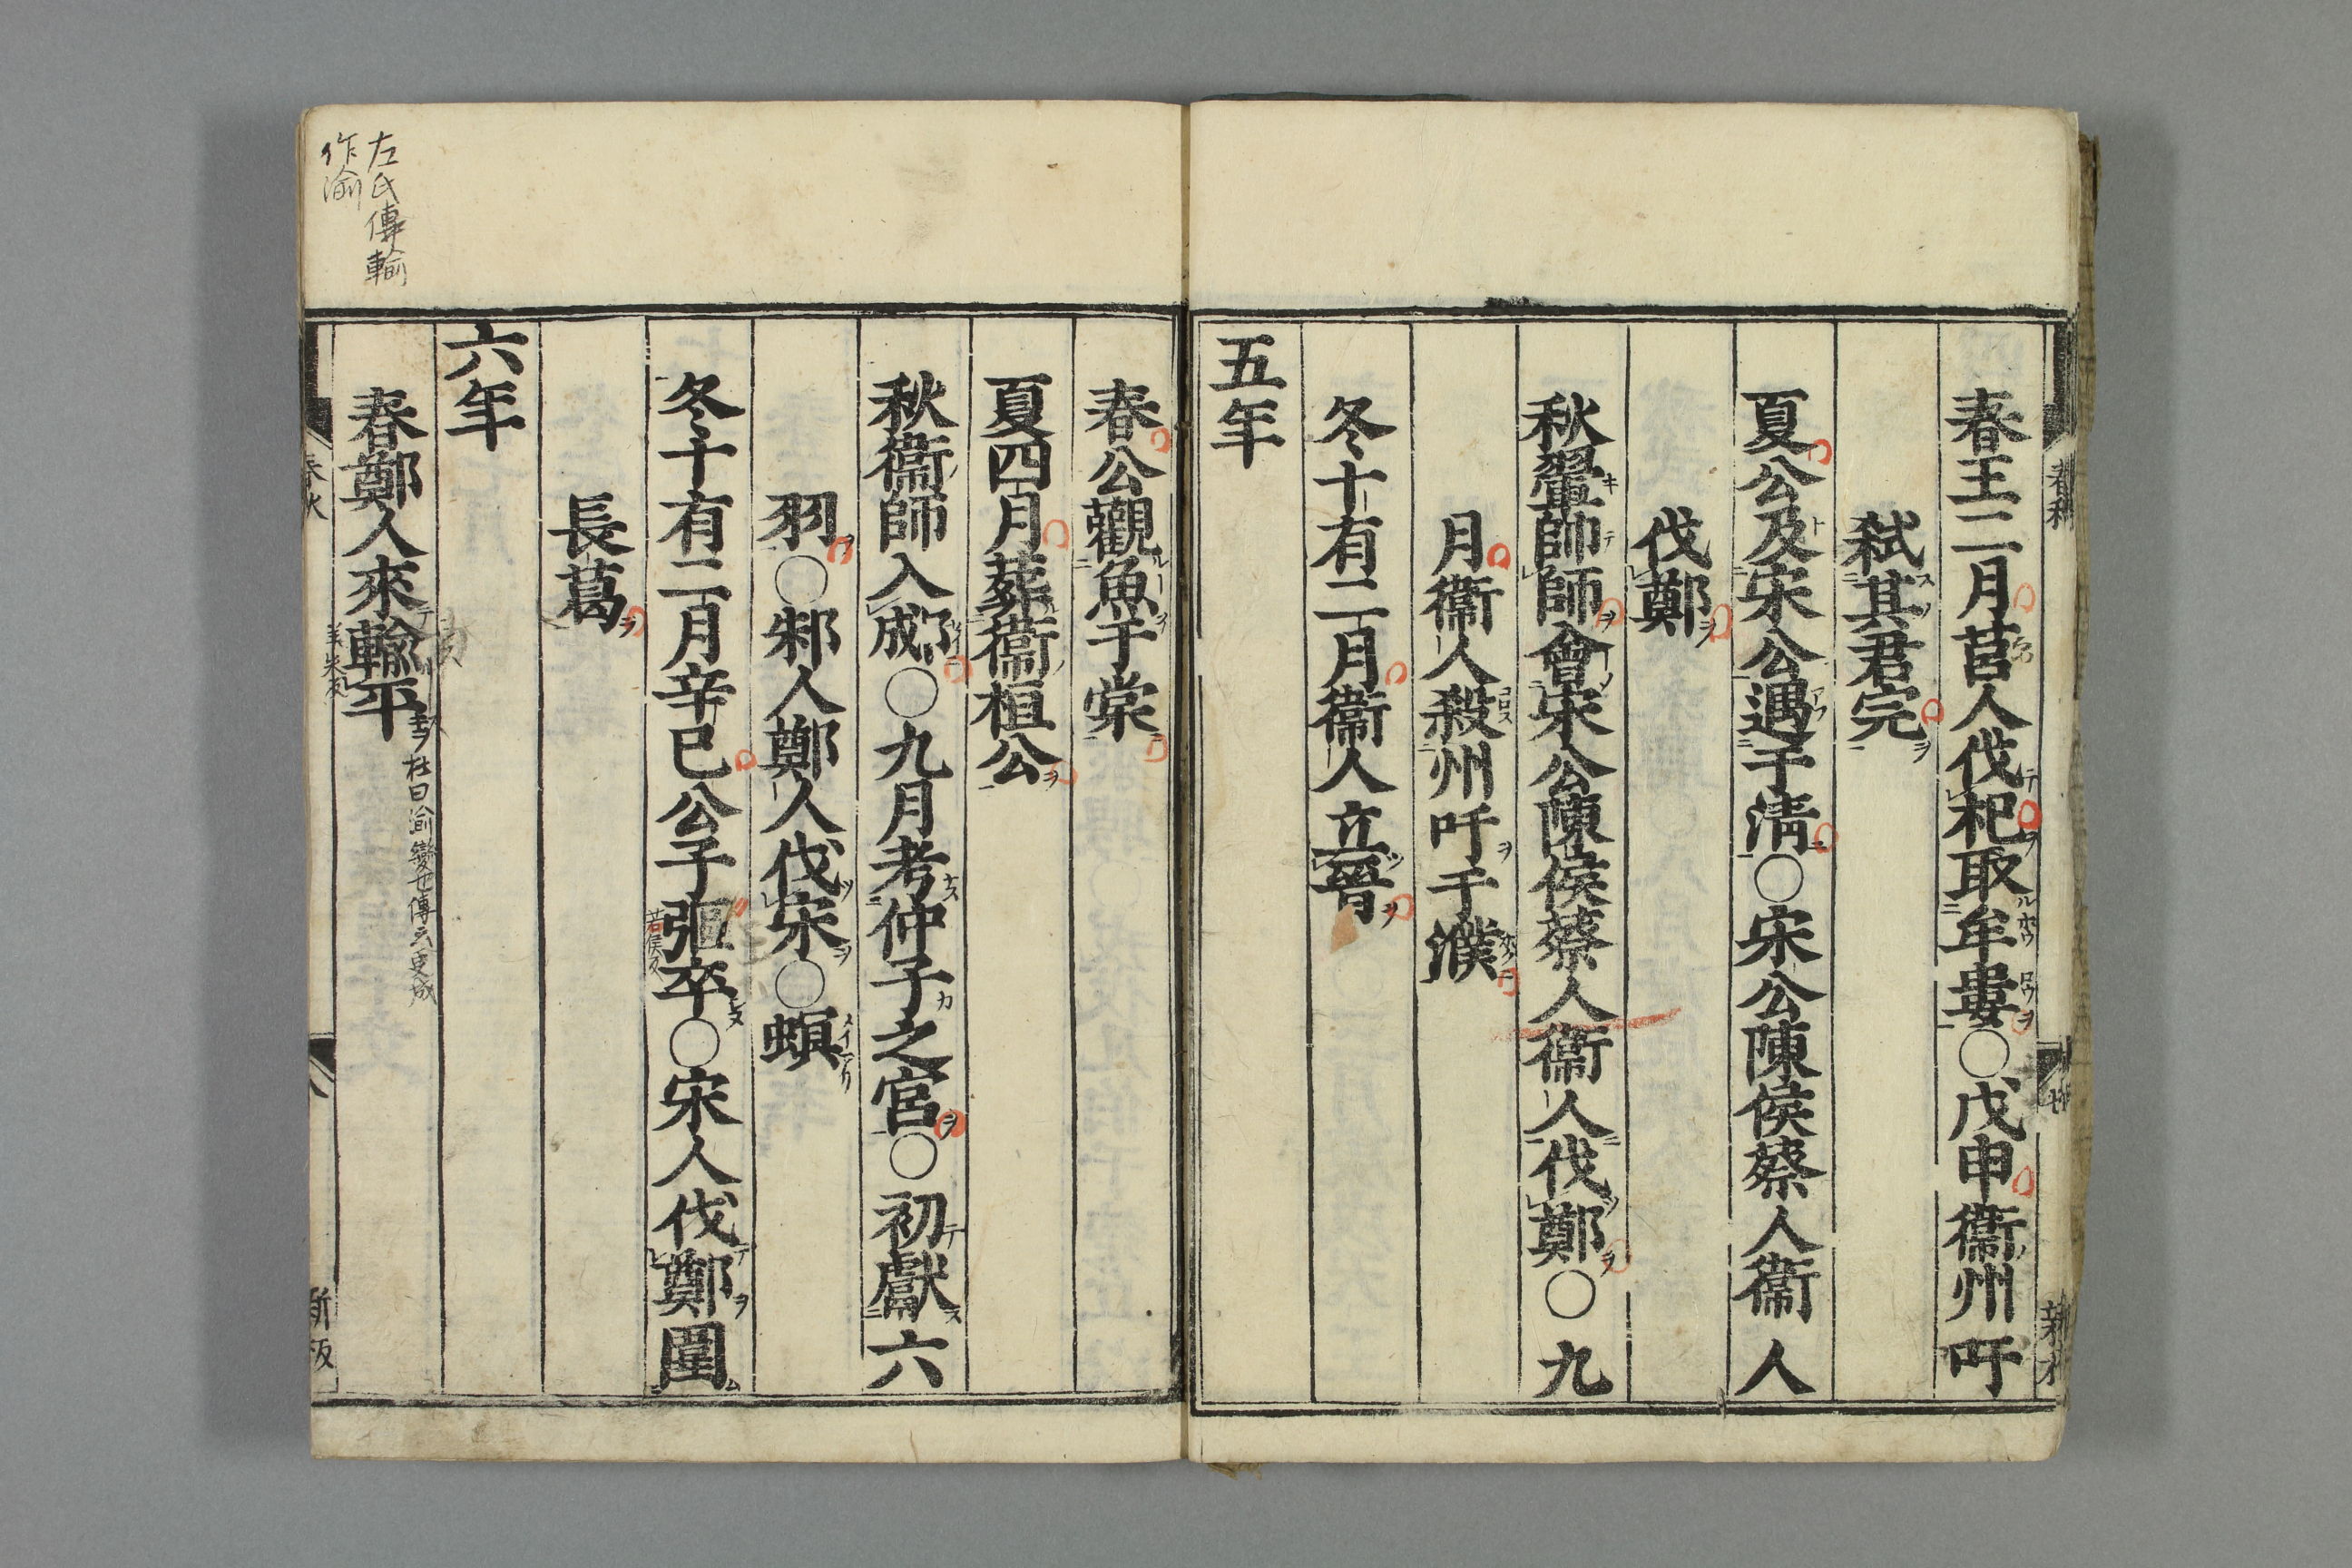 春王二月莒人伐杞取牟婁〇戊申衞州吁
弑其君完
夏公及宋公遇于淸〇宋公陳侯蔡人衞人
伐鄭
秋翬帥師會宋公陳侯蔡人衞人伐鄭〇九
月衞人殺州吁于濮
冬十有二月衞人立晉
五年
春公觀魚于棠
夏四月葬衞桓公
秋衞師入郕〇九月考仲子之宮〇初獻六
羽〇邾人鄭人伐宋〇螟
冬十有二月辛巳公子彄卒〇宋人伐鄭圍
長葛
六年
春鄭人來輸平
杜曰渝變也傳云更成
左氏傳輸
作渝
春秋
新板